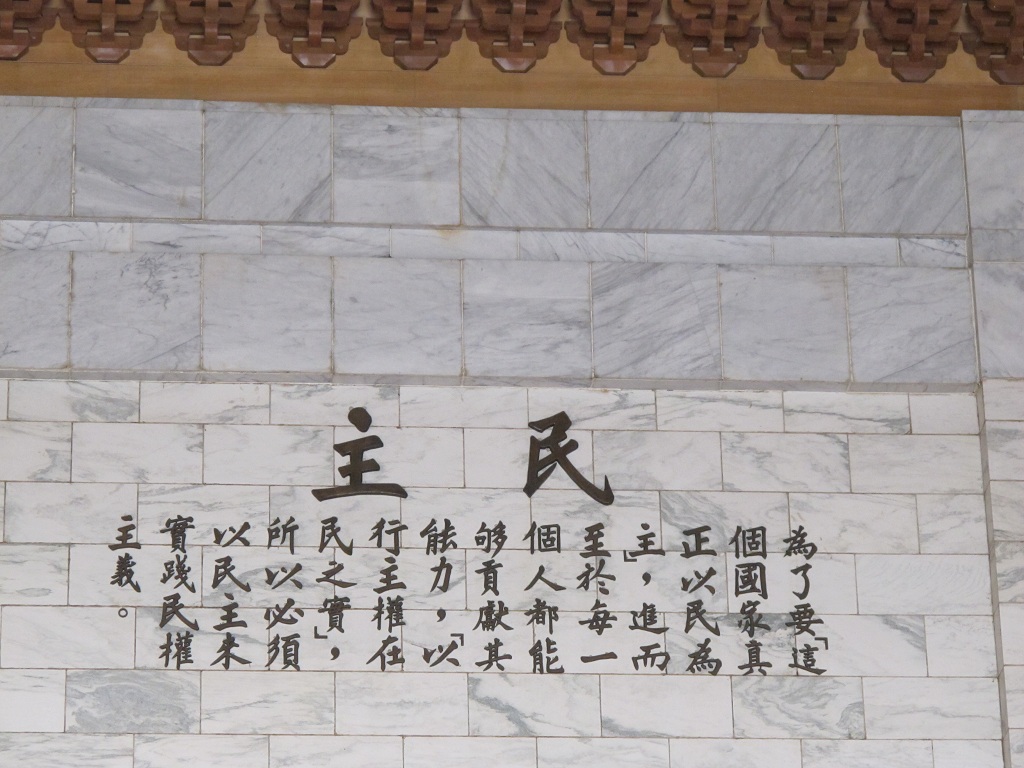 民主
為了要「這
個國家真
正以民為
主」，進而
至於每一
個人都能
够貢獻其
能力，「以
行主權在
民之實」，
所以必須
以民主來
實踐民權
主義。